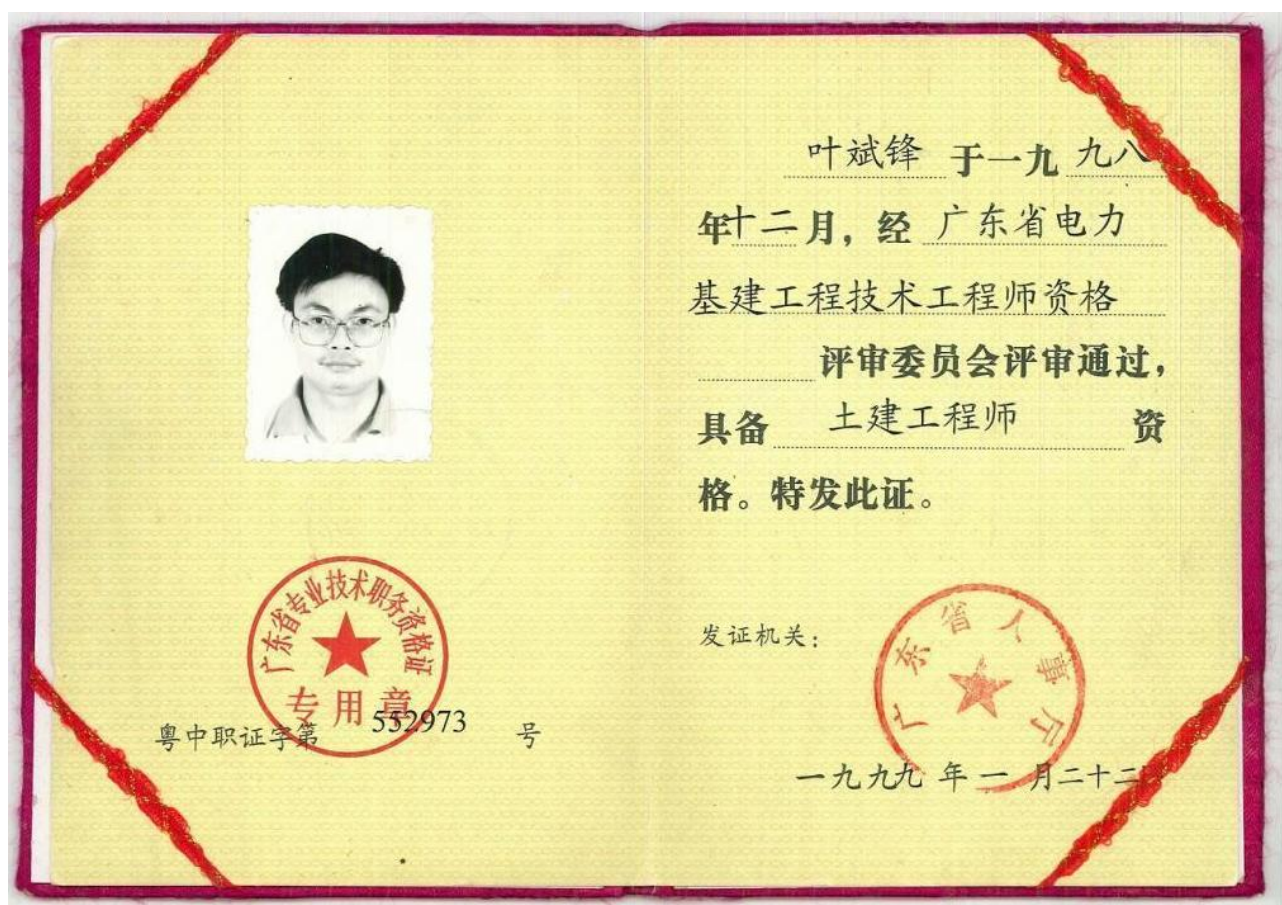 广东省专业技术职务资格证
专用章
粤中职证字第 552973 号
叶斌锋 于一九 九八
年十二月，经 广东省电力
基建工程技术工程师资格
评审委员会评审通过，
具备 土建工程师 资
格。特发此证。
发证机关：
广东省人事厅
一九九九 年 一 月二十二